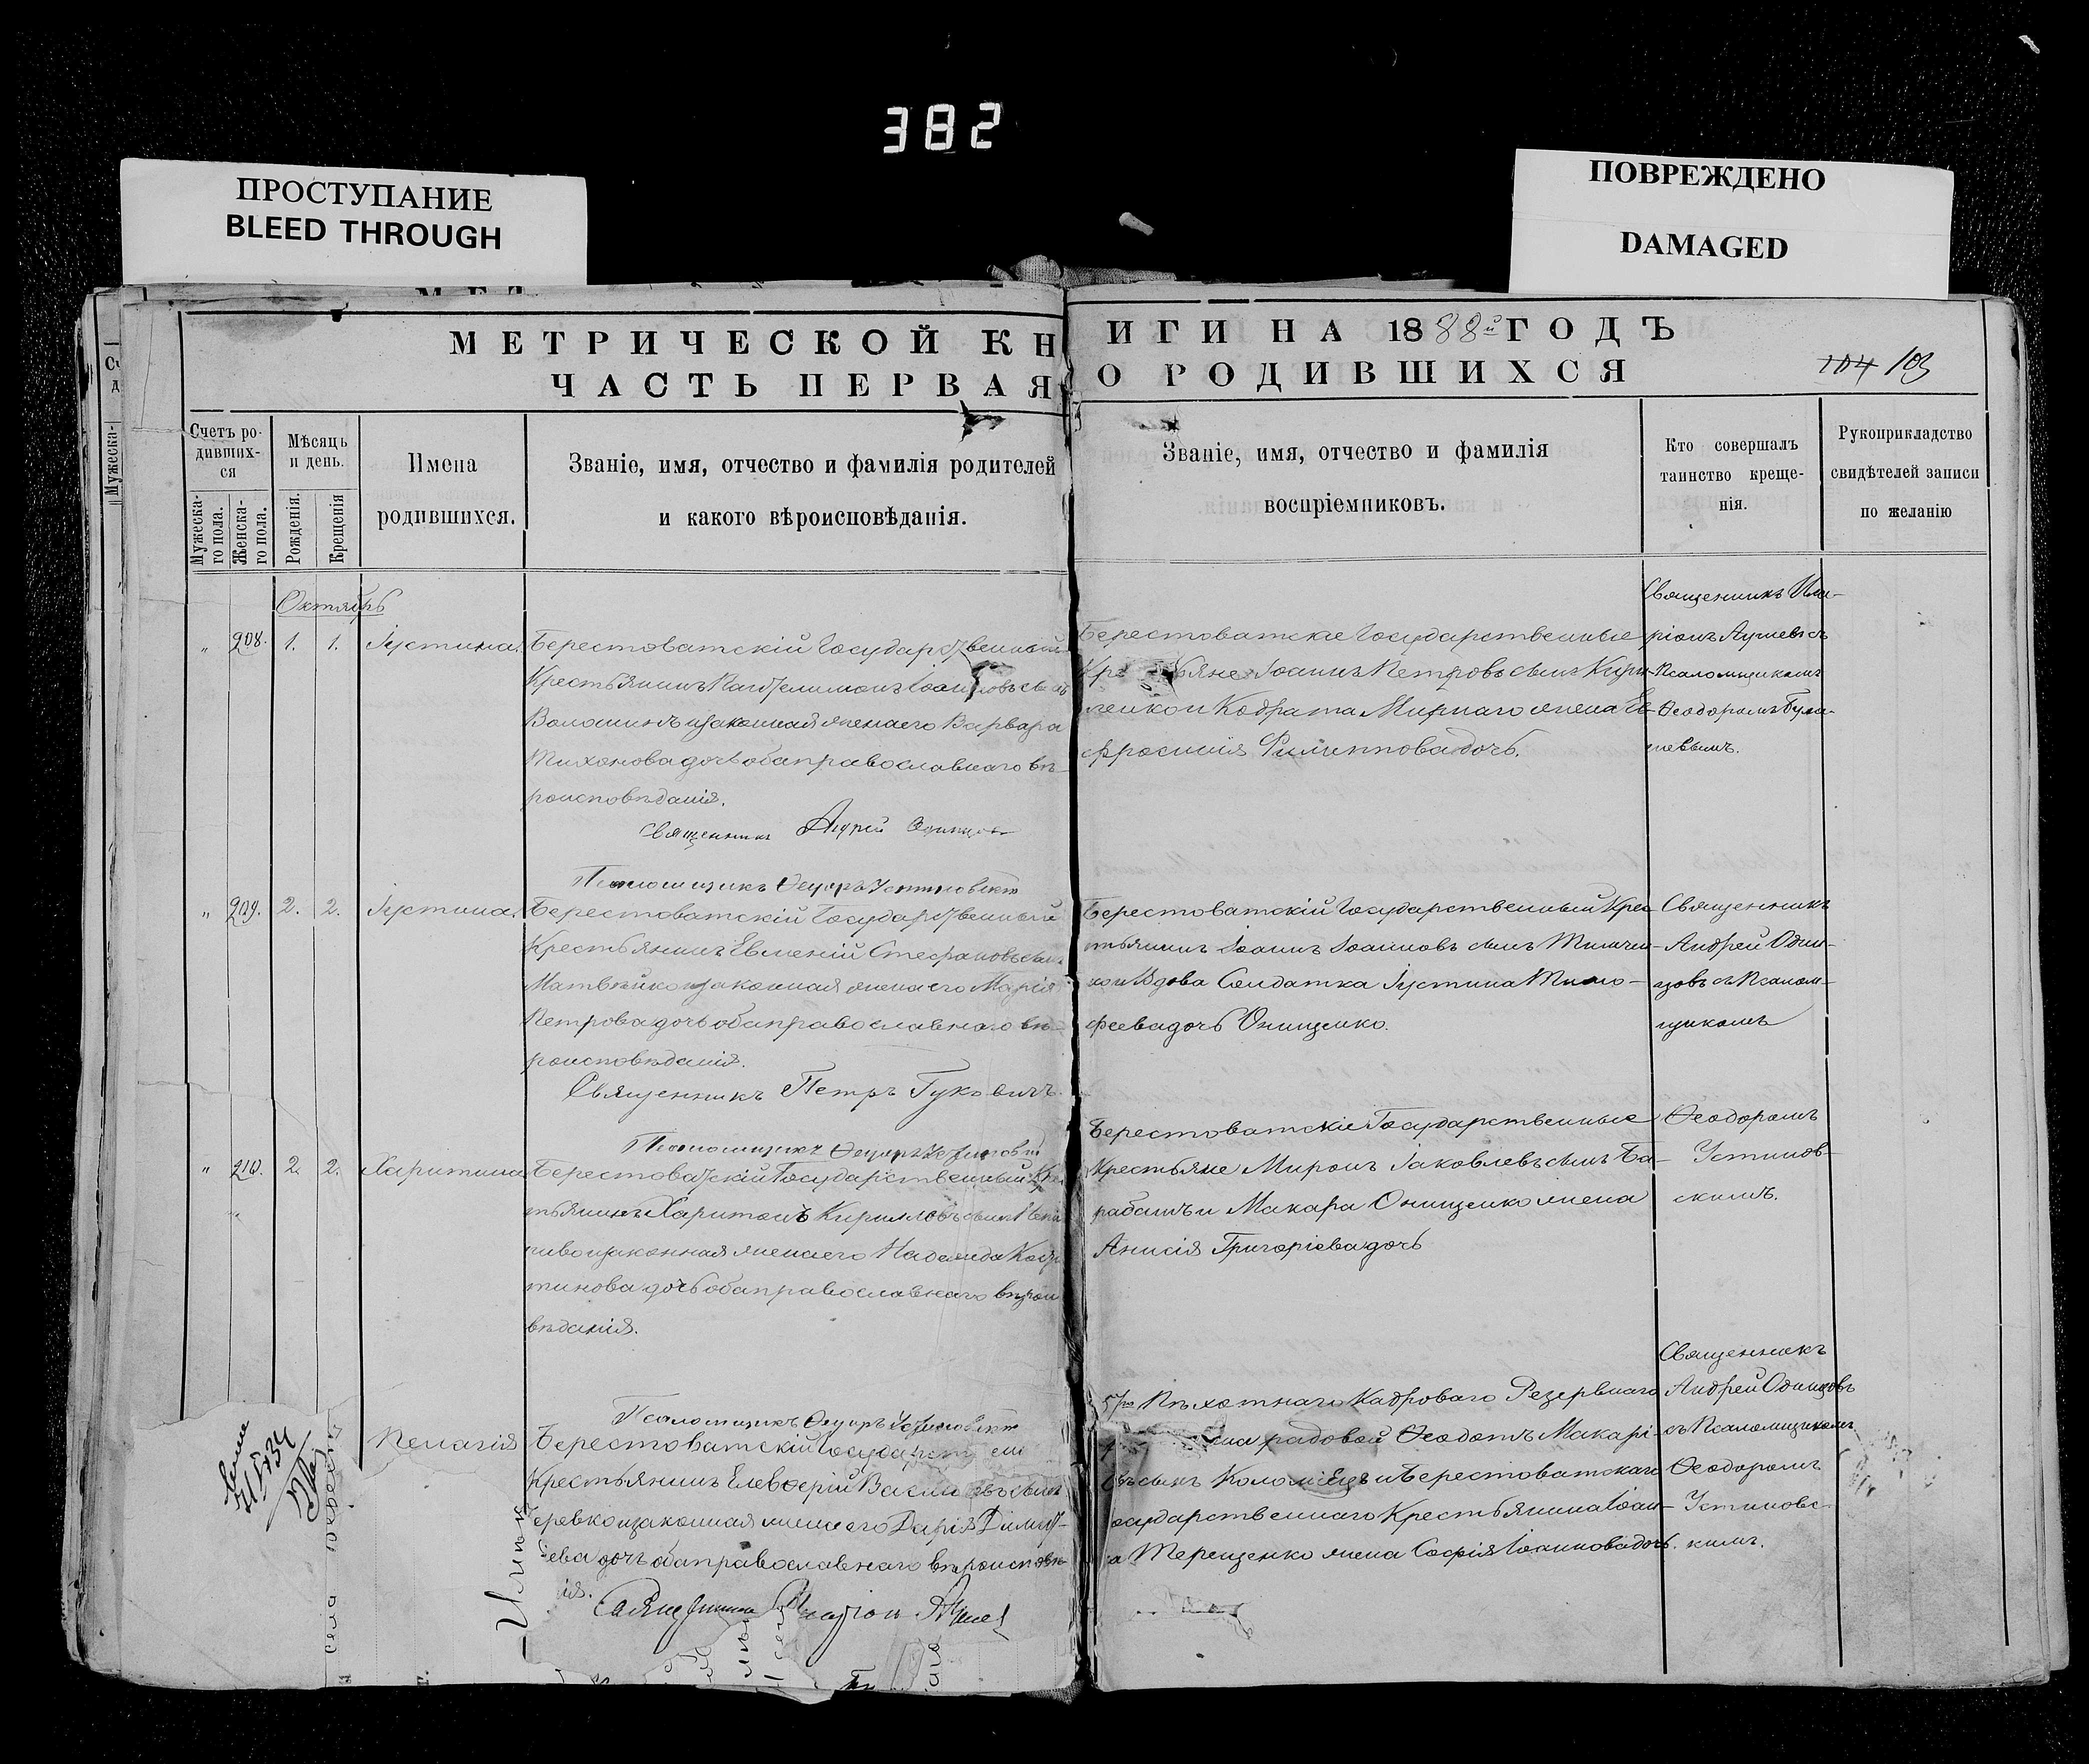 382
ПРОСТУПАНИЕ
BLEED THROUGH
ПОВРЕЖДЕНО
DAMAGED
МЕТРИЧЕСКОЙ КНИГИ НА 1888й ГОДЪ
ЧАСТЬ ПЕРВАЯ О РОДИВШИХСЯ
104 103
Счетъ ро-
дивших-
ся
Мужеска-
го пола.
Женска-
го пола.
Мѣсяцъ
и день.
Рожденія.
Крещенія
Имена
родившихся.
Званіе, имя, отчество и фамилія родителей
и какого вѣроисповѣданія.
Званіе, имя, отчество и фамилія
воспріемниковъ.
Кто совершалъ
таинство креще-
нія.
Рукоприкладство
свидѣтелей записи
по желанію
Октябрь
„ 208. 1. 1. Іустина.
Берестоватскій Государственный
Крестьянинъ Пантелимонъ Іоанновъ сынъ
Волошинъ и законная жена его Варвара
Тихонова дочь оба православнаго вѣ-
роисповѣданія.
Священникъ Андрей Одинцовъ
Берестоватскіе Государственные
Іоаннъ Петровъ сынъ Кири-
ленко и Кодрата Мирнаго жена Ев-
фросинія Филиппова дочь.
Священникъ Ила-
ріонъ съ
Псаломщикомъ
Ѳеодоромъ
Псаломщикъ Ѳеодоръ Устиновскій
„ 209. 2. 2. Іустина.
Берестоватскій Государственный
Крестьянинъ Евменій Стефановъ сынъ
Матвѣйко и законная жена его Марія
Петрова дочь оба православнаго вѣ-
роисповѣданія.
Священникъ Петръ Гуковичъ
Берестоватскій Государственный Крес-
тьянинъ Іоаннъ Іоанновъ сынъ Тимчен-
ко и Вдова Солдатка Іустина Тимо-
феева дочь Онищенко.
Священникъ
Андрей Один-
цовъ съ Псалом-
щикомъ
Ѳеодоромъ
Устинов-
скимъ.
Псаломщикъ Ѳеодоръ Устиновскій
„ 210. 2. 2. Харитина
Берестоватскій Государственный Кре
тьянинъ Харитонъ Кирилловъ сынъ
и законная жена его Надежда
тинова дочь оба православнаго вѣрои
вѣданія.
Берестоватскіе Государственные
Крестьяне Миронъ Іаковлевъ сынъ Ба-
рабашъ и Макара Онищенко жена
Анисія Григоріева дочь
Псаломщикъ Ѳеодоръ Устиновскій
Пелагія
Берестоватскій Государст
Крестьянинъ Елевѳерій сынъ
и законная жена его Дарія Димит-
ева дочь оба православнаго вѣроисповѣ
ія.
Пѣхотнаго Кадроваго Резервнаго
рядовой Ѳеодотъ Макарі-
евъ сынъ Коломіецъ и Берестоватскаго
осударственнаго Крестьянина Іоан-
а Терещенко жена Софія Іоаннова дочь.
Священникъ
Андрей Одинцовъ
съ Псаломщикомъ
Ѳеодоромъ
Устиновс-
кимъ.